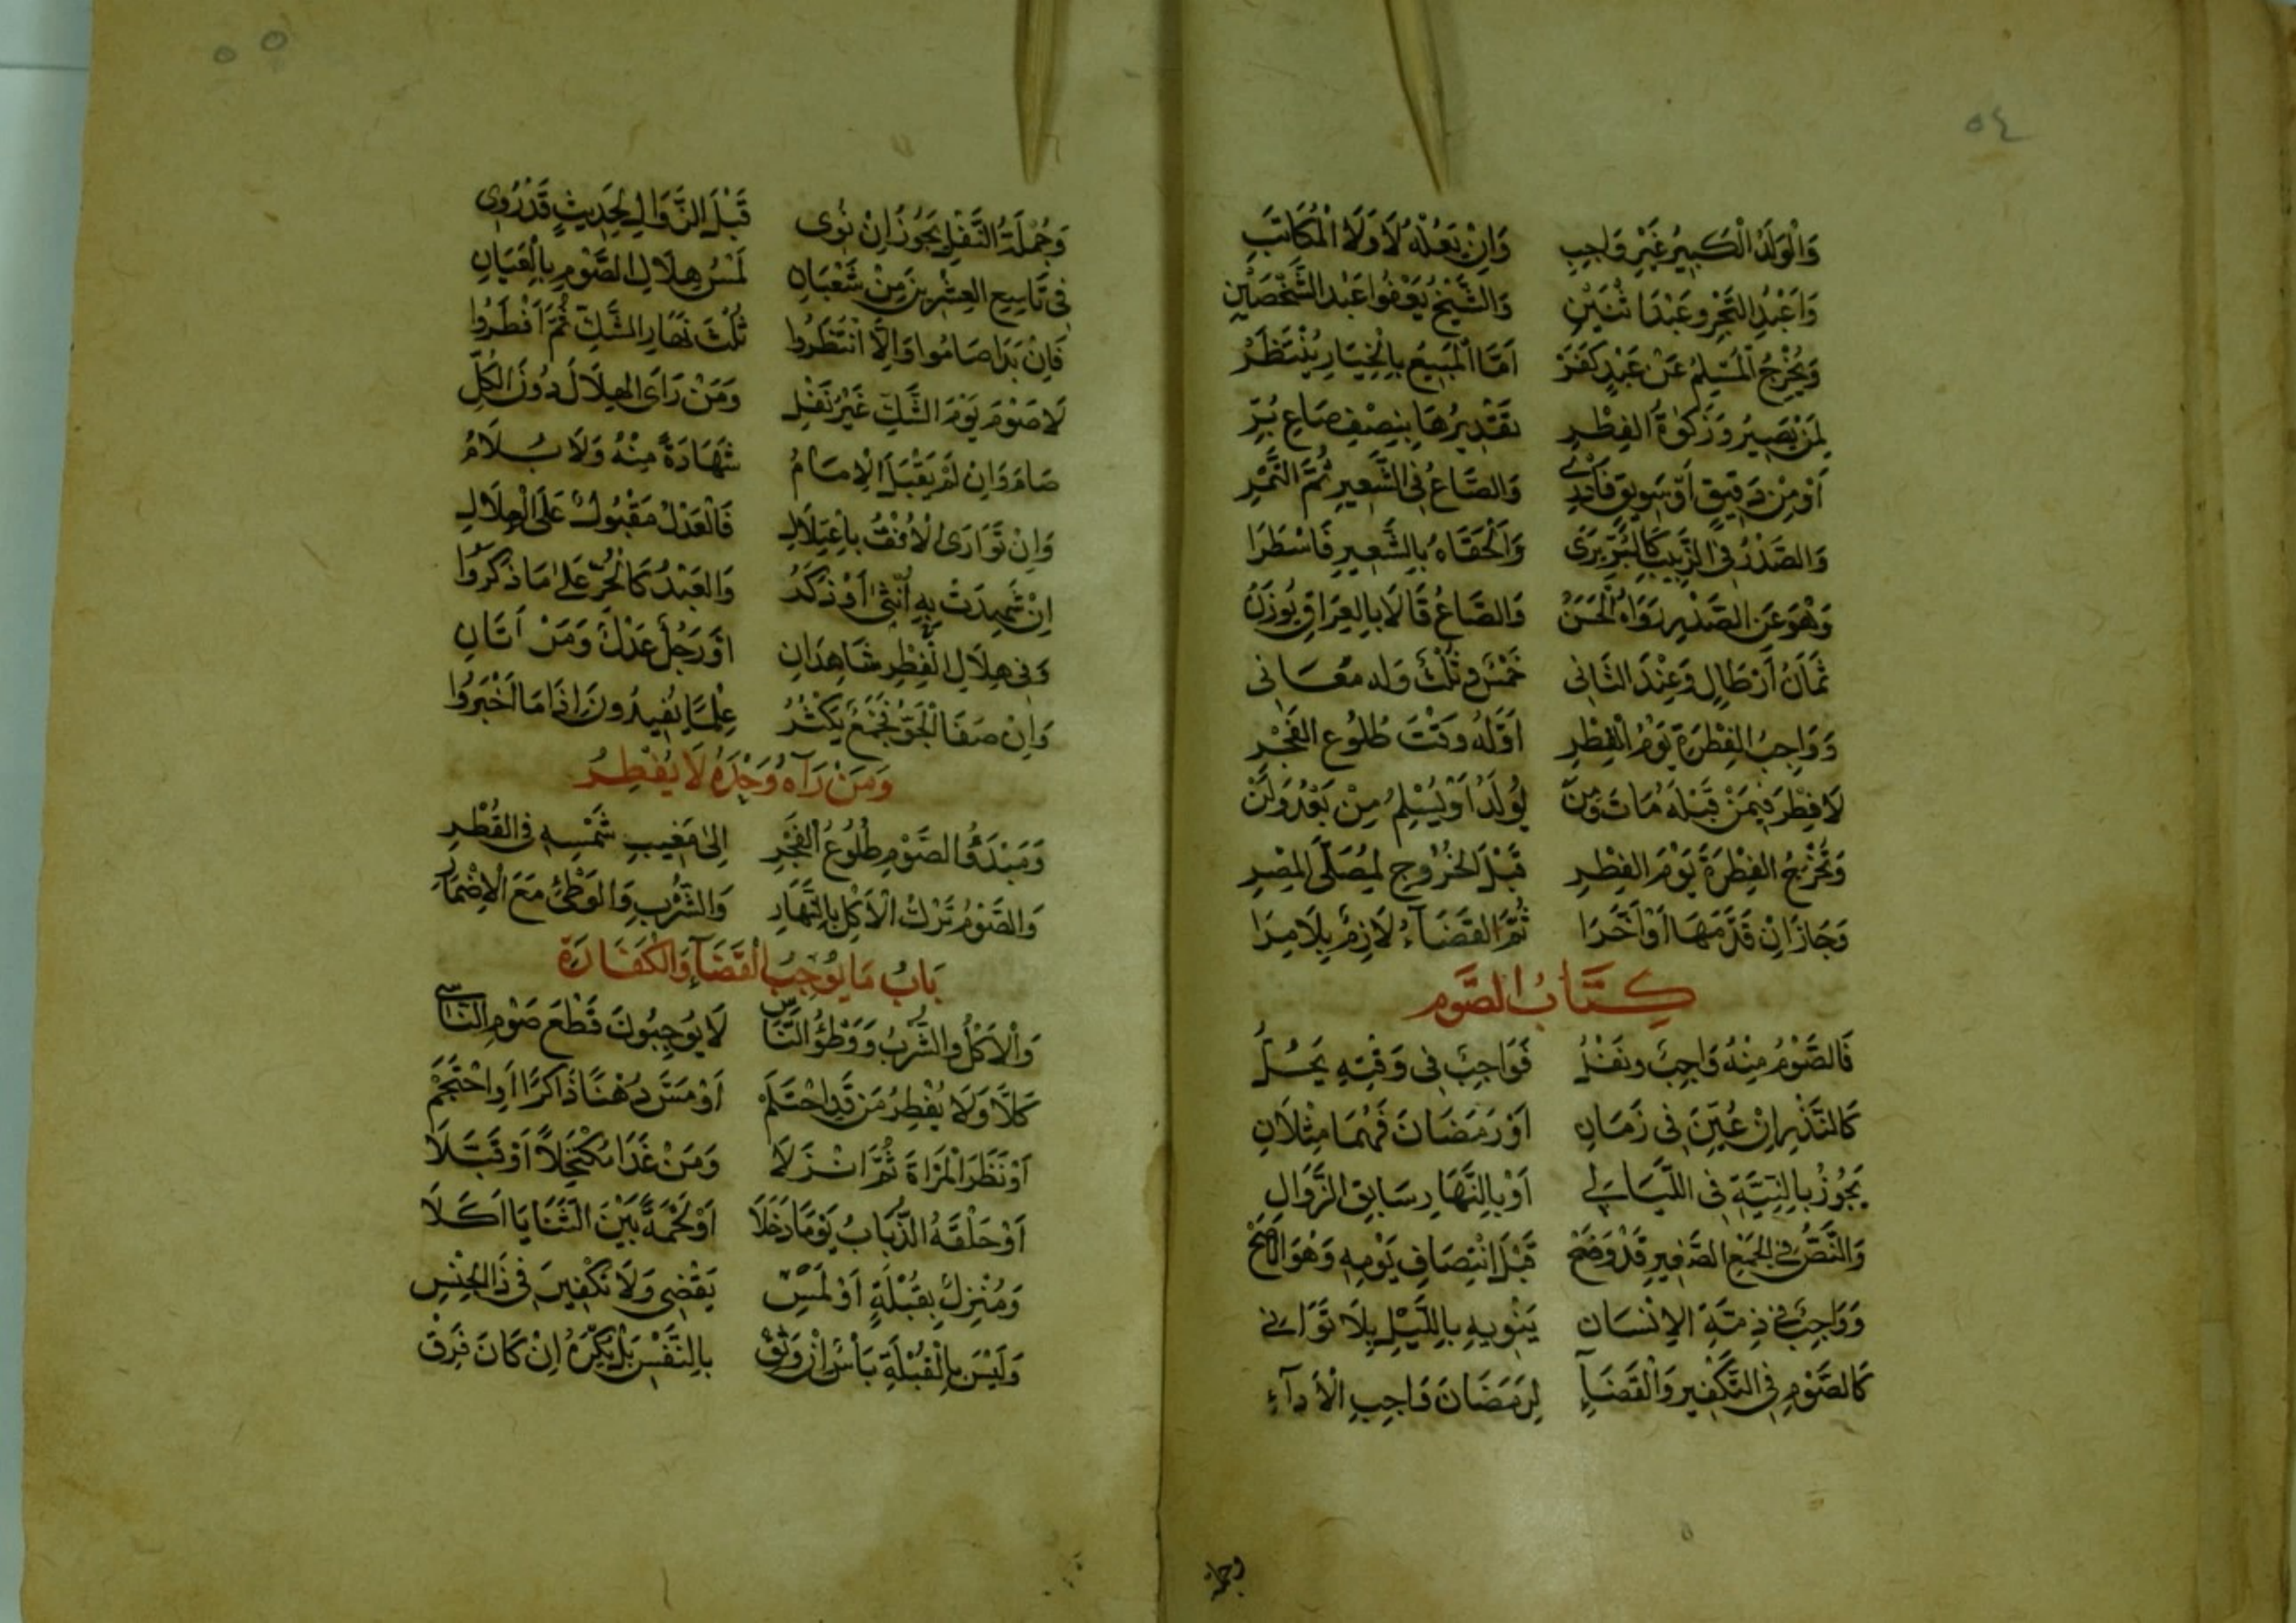 ٥٤
وَالْوَلَدُ الْكَبِيرُ غَيْرُ وَاجِبِ وَاِنْ يَعُلْهُ لَا وَلَا الْمُكَاتَبِ
وَاَعْبُدِ التَّجْرِ وعَبْدَ اثْنَيْنِ وَالشَّيْخُ يَعْفُوا عَبْدَ الشَّخْصَيْنِ
وَيُخْرِجُ الْمُسْلِمُ عَنْ عَبْدٍ كَفَرْ اَمَّا الْمَبِيعُ بِالْخِيَارِ يُنْتَظَرْ
لِمَنْ يَصِيرُ وَزَكٰوةُ الفِطْرِ تَقْدِيرُهَا بِنِصْفِ صَاعِ بُرِّ
اَوْ مِنْ دَقِيقٍ اَوْ سَوِيقٍ فَادْرِ وَالصَّاعُ فِى الشَّعِيرِ ثُمَّ التَّمْرِ
وَالصَّدْرُ فِى الزَّبِيبِ كَالبُرِّ يَرَى وَاَلْحَقَاهُ بِالشَّعِيرِ فَاسْطُرَا
وَهْوَ عَنِ الصَّدْرِ رَوَاهُ الْحَسَنُ وَالصَّاعُ قَالَا بِالعِرَاقِ يُوزَنُ
ثَمَانُ أَرْطَالٍ وَعِنْدَ الثَّانِى خَمْسٌ وثُلْثٌ وَله مَعَانِى
وَوَاجِبُ الفِطْرَةِ يَوْمُ الْفِطْرِ اَوَّلُهُ وَقْتَ طُلُوعِ الفَجْرِ
لَا فِطْرَ فِيمَنْ قَبْلَهُ مَاتَ وَمَنْ يُولَدُ اَوْ يُسْلِمُ مِنْ بَعْدُ وَلَنْ
وَتُخْرَجُ الفِطْرَةُ يَوْمَ الفِطْرِ قَبْلَ الخُرُوجِ لِمُصَلَّى المِصْرِ
وَجَازَ اِنْ قَدَّمَهَا اَوْ اَخَّرَا ثُمَّ القَضَآءُ لَازِمٌ بِلَا مِرَا
كِتَابُ الصَّوم
فَالصَّوْمُ مِنْهُ وَاجِبٌ ونَفْلُ فَوَاجِبٌ فِى وَقْتِهِ يَحُلُّ
كَالنَّذْرِ اِنْ عُيِّنَ فِى زَمَانِ اَوْ رَمَضَانَ فَهُمَا مِثْلَانِ
يَجُوزُ بِالنِّيَّةِ فِى اللَّيَالِي اَوْ بِالنَّهَارِ سَابِقِ الزَّوَالِ
وَالنَّصُّ فِى الجَمْعِ الصَّغِيرِ قَدْ وَضَحْ قَبْلَ انْتِصَافِ يَوْمِهِ وَهُوَ الاَصَحّ
وَوَاجِبٌ فِى ذِمَّةِ الاِنْسَانِ يَنْوِيهِ بِاللَّيْلِ بِلَا تَوَانِي
كَالصَّوْمِ فِى التَّكْفِيرِ وَالْقَضَآءِ لِرَمَضَانَ وَاجِبِ الْاَدَآءِ
وجملة
٥٥
وَجُمْلَةُ النَّفْلِ يَجُوزُ اِنْ نُوِى قَبْلَ الزَّوَالِ لِحَدِيثٍ قَدْ رُوِى
فِى تَاسِعِ العِشْرِينَ مِنْ شَعْبَانِ لَمْسُ هِلَالِ الصَّوْمِ بِالْعَيَانِ
فَاِنْ بَدَا صَامُوا وَاِلَّا انْتَظَرُوا ثُلْثَ نَهَارِ الشَّكِّ ثُمَّ اَفْطَرُوا
لَا صَوْمَ يَوْمَ الشَّكِّ غَيْرُ نَفْلِ وَمَنْ رَاَى الهِلَالَ دُونَ الكُلِّ
صَامَ وَاِنْ لَمْ يَقْبَلِ الْاِمَامُ شَهَادَةً مِنْهُ وَلَا يُلَامُ
وَاِنْ تَوَارَى الْاُفْقُ بِاعْتِلَالِ فَالْعَدْلُ مَقْبُولٌ عَلَى الْهِلَالِ
اِنْ شَهِدَتْ بِهِ اُنْثٰى اَوْ ذَكَرُ وَالعَبْدُ كَالْحُرِّ عَلٰى مَا ذَكَرُوا
وَفِى هِلَالِ الْفِطْرِ شَاهِدَانِ اَوْ رَجُلٌ عَدْلٌ وَمَرْاَتَانِ
وَاِنْ صَفَا الْجَوُّ فَجَمْعٌ يَكْثُرُ عِلْمًا يُفِيدُونَ اِذَا مَا اَخْبَرُوا
وَمَنْ رَآهُ وَحْدَهُ لَا يُفْطِرُ
وَمَبْدَؤُ الصَّوْمِ طُلُوعُ الْفَجْرِ اِلٰى مَغِيبِ شَمْسِهِ فِى القُطْرِ
وَالصَّوْمُ تَرْكُ الْاَكْلِ بِالنَّهَارِ وَالشُّرْبِ وَالوَطْئِ مَعَ الْاِضْمَارِ
بَابُ مَا يُوجِبُ الْقَضَآءَ وَالْكَفَّارَةَ
وَالْاَكْلُ وَالشُّرْبُ وَوَطْؤُ النَّاسِى لَا يُوجِبُونَ قَطْعَ صَوْمِ النَّاسِى
كَلَّا وَلَا يُفْطِرُ مَنْ قَدِ احْتَلَمْ اَوْ مَسَّ دُهْنًا ذَاكِرًا اَوِ احْتَجَمْ
اَوْ نَظَرَ الْمَرْاَةَ ثُمَّ انْزَلَا وَمَنْ غَدَا مُكْتَحِلًا اَوْ قَبَّلَا
اَوْ حَلْقَهُ الذُّبَابُ يَوْمًا دَخَلَا اَوْ لَحْمَةً بَيْنَ الثَّنَايَا اَكَلَا
وَمُنْزِلٌ بِقُبْلَةٍ اَوْ لَمْسِ يَقْضِى وَلَا تَكْفِيرَ فِى ذَا الجِنْسِ
وَلَيْسَ بِالْقُبْلَةِ بَأْسٌ اِنْ وَثِقْ بِالنَّفْسِ بَلْ يُكْرَهُ اِنْ كَانَ فَرِقْ